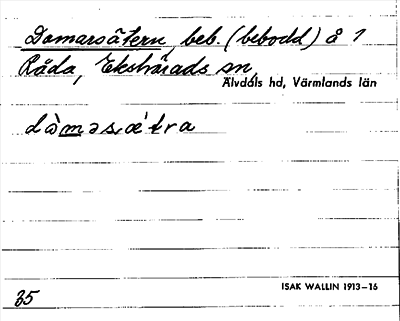 Domarsätern, beb. (bebodd) å 1
Råda, Ekshärads sn,
Älvdals hd, Värmlands län
dὰməsætra
ISAK WALLIN 1913–16
35